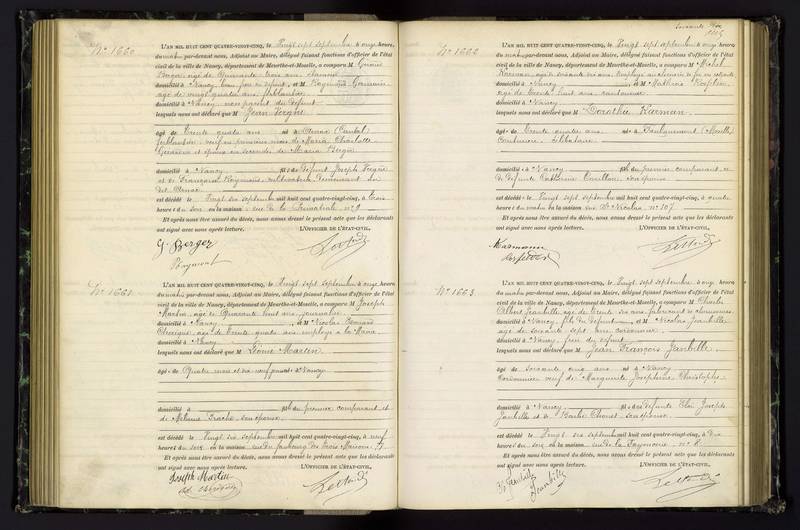 N° 1660
L'AN MIL HUIT CENT QUATRE-VINGT-CINQ, le Vingt sept septembre à onze heures
du matin par-devant nous, Adjoint au Maire, délégué faisant fonctions d'officier de l'état
civil de la ville de Nancy, département de Meurthe-et-Moselle, a comparu M
Berger âgé de Quarante trois ans
domicilié à Nancy, beau frère du défunt, et M Raymond
âgé de vingt quatre ans, ferblantier
domicilié à Nancy non parent du défunt
lesquels nous ont déclaré que M Jean
âgé de Trente quatre ans né à (Cantal)
ferblantier, veuf en premières noces de Maria Charlotte
et époux en secondes de Maria Berger
domicilié à Nancy fils de défunt Joseph
et de Françoise
est décédé le Vingt six septembre mil huit cent quatre-vingt-cinq, à trois
heures du soir en la maison rue de la Primatiale n° 9
Et après nous être assuré du décès, nous avons dressé le présent acte que les déclarants
ont signé avec nous après lecture. L'OFFICIER DE L'ÉTAT-CIVIL,
Berger
N° 1661
L'AN MIL HUIT CENT QUATRE-VINGT-CINQ, le Vingt sept septembre à onze heures
du matin par-devant nous, Adjoint au Maire, délégué faisant fonctions d'officier de l'état
civil de la ville de Nancy, département de Meurthe-et-Moselle, a comparu M Joseph
Martin, âgé de Quarante huit ans, journalier
domicilié à Nancy, et M Nicolas
âgé de Trente quatre ans employé à la Mairie
domicilié à Nancy
lesquels nous ont déclaré que M Léonie Martin
âgée de Quatre mois et née à Nancy
domicilié à fille du premier comparant et
de son épouse
est décédé le Vingt six septembre mil huit cent quatre-vingt-cinq, à neuf
heures du soir en la maison rue du faubourg des Trois Maisons
Et après nous être assuré du décès, nous avons dressé le présent acte que les déclarants
ont signé avec nous après lecture. L'OFFICIER DE L'ÉTAT-CIVIL,
Joseph Martin
N° 1662
L'AN MIL HUIT CENT QUATRE-VINGT-CINQ, le Vingt sept septembre à onze heures
du matin par-devant nous, Adjoint au Maire, délégué faisant fonctions d'officier de l'état
civil de la ville de Nancy, département de Meurthe-et-Moselle, a comparu M Michel
Karman, âgé de soixante six ans, Employé au chemin de fer en retraite
domicilié à Nancy et M Mathias
âgé de Trente huit ans cantonnier
domicilié à Nancy
lesquels nous ont déclaré que M Dorothée Karman
âgée de Trente quatre ans née à Faulquemont (Moselle)
Couturière, célibataire
domicilié à Nancy fille du premier comparant et
de défunte Catherine son épouse
est décédé le Vingt sept septembre mil huit cent quatre-vingt-cinq, à quatre
heures du matin en la maison rue St Nicolas, n° 107
Et après nous être assuré du décès, nous avons dressé le présent acte que les déclarants
ont signé avec nous après lecture. L'OFFICIER DE L'ÉTAT-CIVIL,
Karmann
N° 1663
L'AN MIL HUIT CENT QUATRE-VINGT-CINQ, le Vingt sept septembre à onze heures
du matin par-devant nous, Adjoint au Maire, délégué faisant fonctions d'officier de l'état
civil de la ville de Nancy, département de Meurthe-et-Moselle, a comparu M Charles
Albert Jeanbille âgé de Trente six ans, fabricant de chaussures
domicilié à Nancy, fils du défunt et M Nicolas Jeanbille
âgé de soixante sept ans cordonnier
domicilié à Nancy frère du défunt
lesquels nous ont déclaré que M Jean François Jeanbille
âgé de soixante cinq ans né à Nancy
Cordonnier veuf de Marguerite Joséphine Christophe
domicilié à Nancy fils des défunts Joseph
Jeanbille et de Barbe son épouse
est décédé le Vingt six septembre mil huit cent quatre-vingt-cinq, à dix
heures du soir en la maison rue de la n° 8
Et après nous être assuré du décès, nous avons dressé le présent acte que les déclarants
ont signé avec nous après lecture. L'OFFICIER DE L'ÉTAT-CIVIL,
Jeanbille
Jeanbille